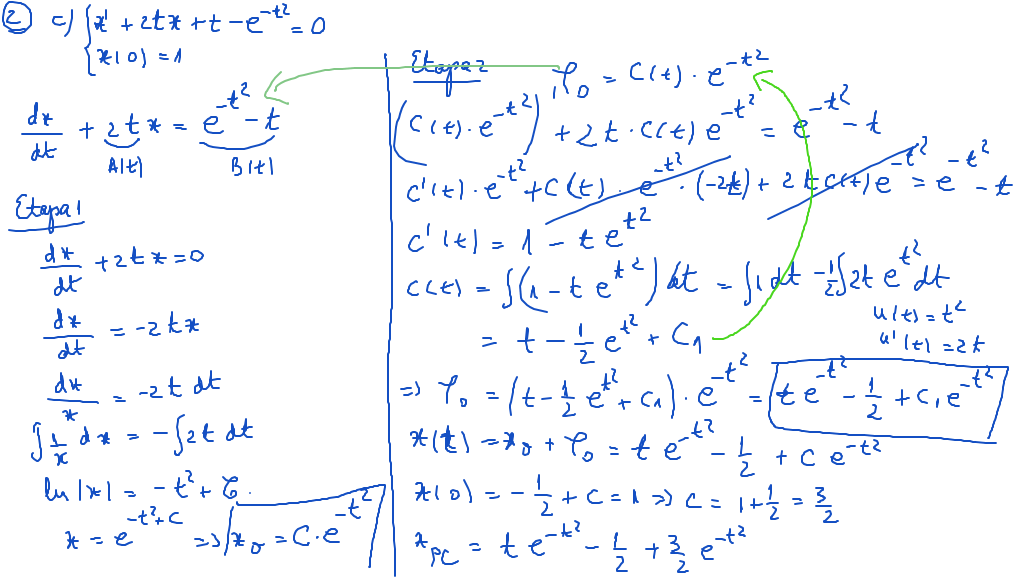 ② c) { x' + 2tx + t - e^{-t²} = 0
x(0) = 1
dx/dt + 2t x = e^{-t²} - t
A(t) B(t)
Etapa 1
dx/dt + 2tx = 0
dx/dt = -2tx
dx/x = -2t dt
∫ 1/x dx = -∫ 2t dt
ln |x| = -t² + C
x = e^{-t²+C} => x_0 = C · e^{-t²}
Etapa 2 φ_0 = C(t) · e^{-t²}
(C(t) · e^{-t²})' + 2t · C(t) e^{-t²} = e^{-t²} - t
C'(t) · e^{-t²} + C(t) · e^{-t²} · (-2t) + 2t C(t) e^{-t²} = e^{-t²} - t
C'(t) = 1 - t e^{t²}
C(t) = ∫(1 - t e^{t²}) dt = ∫1 dt - 1/2 ∫2t e^{t²} dt
u(t) = t²
u'(t) = 2t
= t - 1/2 e^{t²} + C_1
=> φ_0 = (t - 1/2 e^{t²} + C_1) · e^{-t²} = t e^{-t²} - 1/2 + C_1 e^{-t²}
x(t) = x_0 + φ_0 = t e^{-t²} - 1/2 + C e^{-t²}
x(0) = -1/2 + C = 1 => C = 1 + 1/2 = 3/2
x_{PC} = t e^{-t²} - 1/2 + 3/2 e^{-t²}